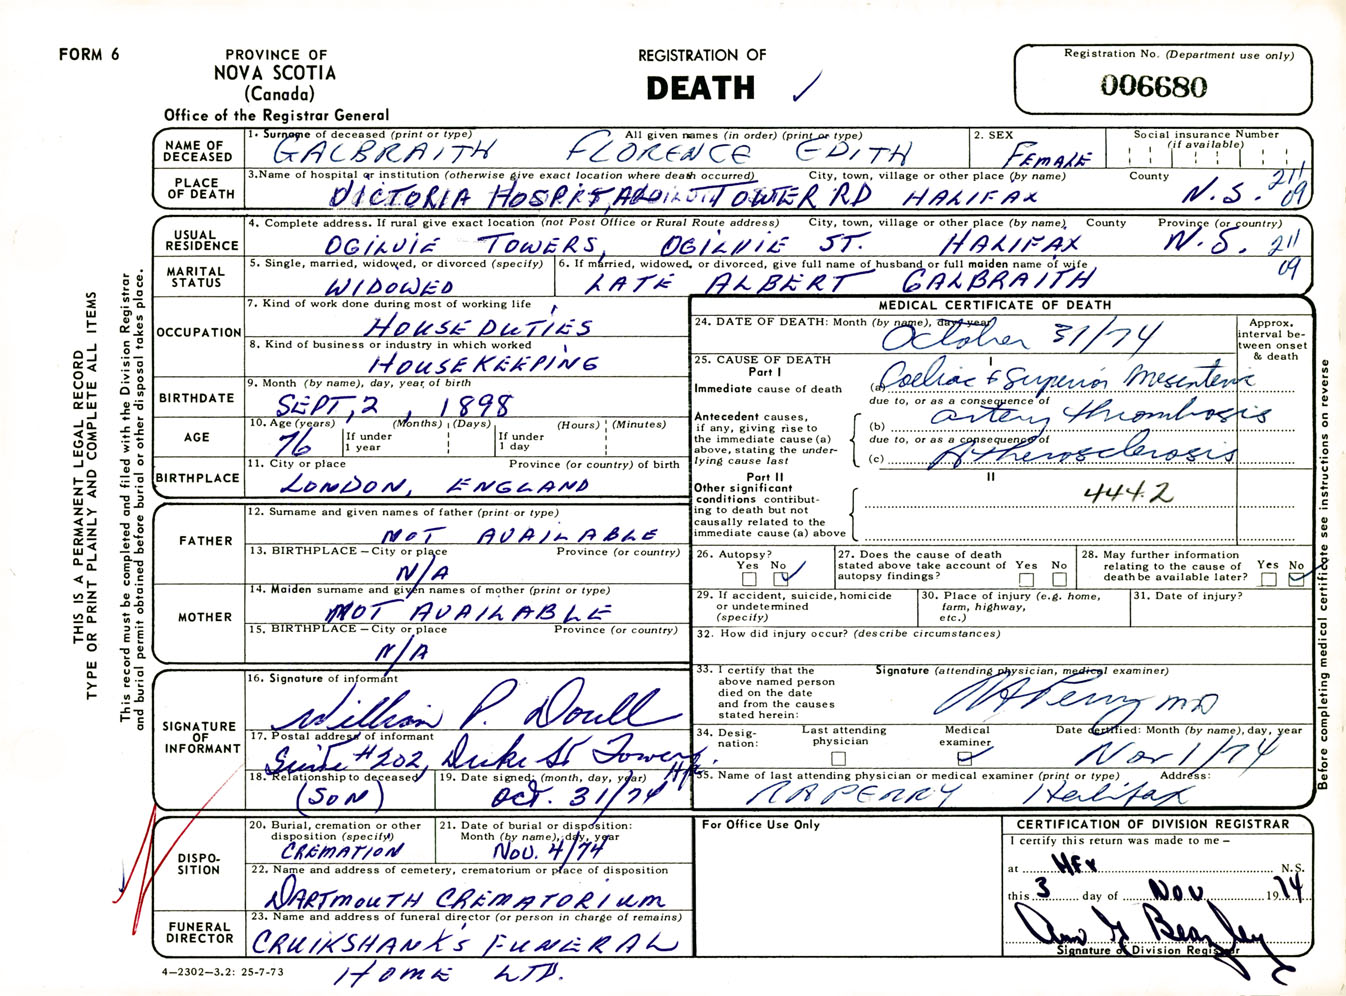 FORM 6
PROVINCE OF
NOVA SCOTIA
(Canada)
Office of the Registrar General
REGISTRATION OF
DEATH
Registration No. (Department use only)
006680
THIS IS A PERMANENT LEGAL RECORD
TYPE OR PRINT PLAINLY AND COMPLETE ALL ITEMS
This record must be completed and filed with the Division Registrar
and burial permit obtained before burial or other disposal takes place.
NAME OF DECEASED
1. Surname of deceased (print or type) All given names (in order) (print or type)
GALBRAITH FLORENCE EDITH
2. SEX
FEMALE
Social insurance Number
(if available)
PLACE OF DEATH
3. Name of hospital or institution (otherwise give exact location where death occurred) City, town, village or other place (by name) County
VICTORIA HOSPITAL TOWER RD HALIFAX N.S. 211
09
USUAL RESIDENCE
4. Complete address. If rural give exact location (not Post Office or Rural Route address) City, town, village or other place (by name) County Province (or country)
OGILVIE TOWERS, OGILVIE ST. HALIFAX N.S. 211
09
MARITAL STATUS
5. Single, married, widowed, or divorced (specify)
WIDOWED
6. If married, widowed, or divorced, give full name of husband or full maiden name of wife
LATE ALBERT GALBRAITH
OCCUPATION
7. Kind of work done during most of working life
HOUSE DUTIES
8. Kind of business or industry in which worked
HOUSEKEEPING
BIRTHDATE
9. Month (by name), day, year of birth
SEPT, 2, 1898
AGE
10. Age (years) (Months) (Days) (Hours) (Minutes)
76 If under 1 year If under 1 day
BIRTHPLACE
11. City or place Province (or country) of birth
LONDON, ENGLAND
FATHER
12. Surname and given names of father (print or type)
NOT AVAILABLE
13. BIRTHPLACE – City or place Province (or country)
N/A
MOTHER
14. Maiden surname and given names of mother (print or type)
NOT AVAILABLE
15. BIRTHPLACE – City or place Province (or country)
N/A
SIGNATURE OF INFORMANT
16. Signature of informant
William P. Doull
17. Postal address of informant
Suite #202, Duke St Towers Hfx.
18. Relationship to deceased
(SON)
19. Date signed: (month, day, year)
OCT. 31/74
DISPO-
SITION
20. Burial, cremation or other
disposition (specify)
CREMATION
21. Date of burial or disposition:
Month (by name), day, year
NOV. 4/74
22. Name and address of cemetery, crematorium or place of disposition
DARTMOUTH CREMATORIUM
FUNERAL DIRECTOR
23. Name and address of funeral director (or person in charge of remains)
CRUIKSHANK'S FUNERAL
HOME LTD.
4–2302–3.2: 25-7-73
MEDICAL CERTIFICATE OF DEATH
24. DATE OF DEATH: Month (by name), day, year
October 31/74
Approx.
interval be-
tween onset
& death
25. CAUSE OF DEATH
Part I
I
Immediate cause of death
(a) Coeliac & Superior Mesenteric
due to, or as a consequence of
Antecedent causes,
if any, giving rise to
the immediate cause (a)
above, stating the under-
lying cause last
(b) artery thrombosis
due to, or as a consequence of
(c) Atherosclerosis
Part II
II
Other significant
conditions contribut-
ing to death but not
causally related to the
immediate cause (a) above
444.2
26. Autopsy?
Yes No
27. Does the cause of death
stated above take account of
autopsy findings?
Yes No
28. May further information
relating to the cause of
death be available later?
Yes No
29. If accident, suicide, homicide
or undetermined
(specify)
30. Place of injury (e.g. home,
farm, highway,
etc.)
31. Date of injury?
32. How did injury occur? (describe circumstances)
33. I certify that the
above named person
died on the date
and from the causes
stated herein:
Signature (attending physician, medical examiner)
RAPerry MD
34. Desig-
nation:
Last attending
physician
Medical
examiner
Date certified: Month (by name), day, year
Nov 1/74
35. Name of last attending physician or medical examiner (print or type) Address:
RAPERRY Halifax
Before completing medical certificate see instructions on reverse
For Office Use Only
CERTIFICATION OF DIVISION REGISTRAR
I certify this return was made to me –
at HFX N.S.
this 3 day of NOV 19 74
Signature of Division Registrar